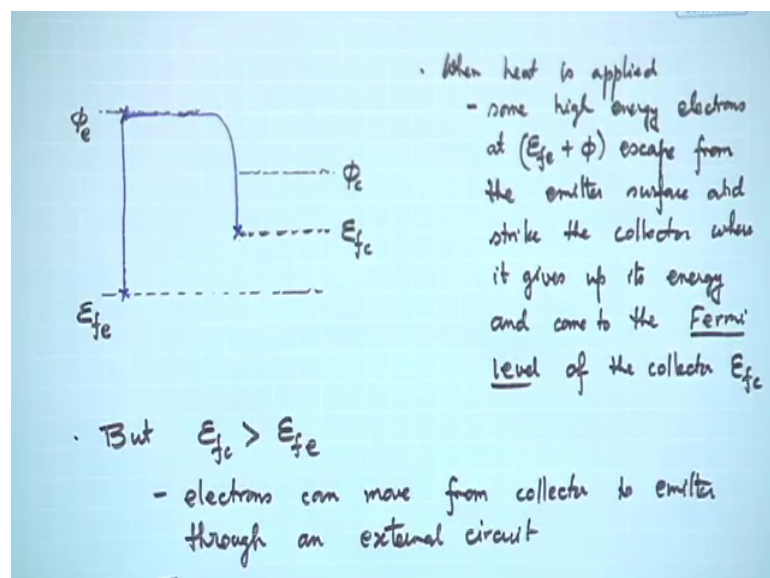 · When heat is applied
- some high energy electrons
at (εfe + ϕ) escape from
the emitter surface and
strike the collector where
it gives up its energy
and come to the Fermi
level of the collector εfc
ϕe
ϕc
εfc
εfe
· But εfc > εfe
- electrons can move from collector to emitter
through an external circuit